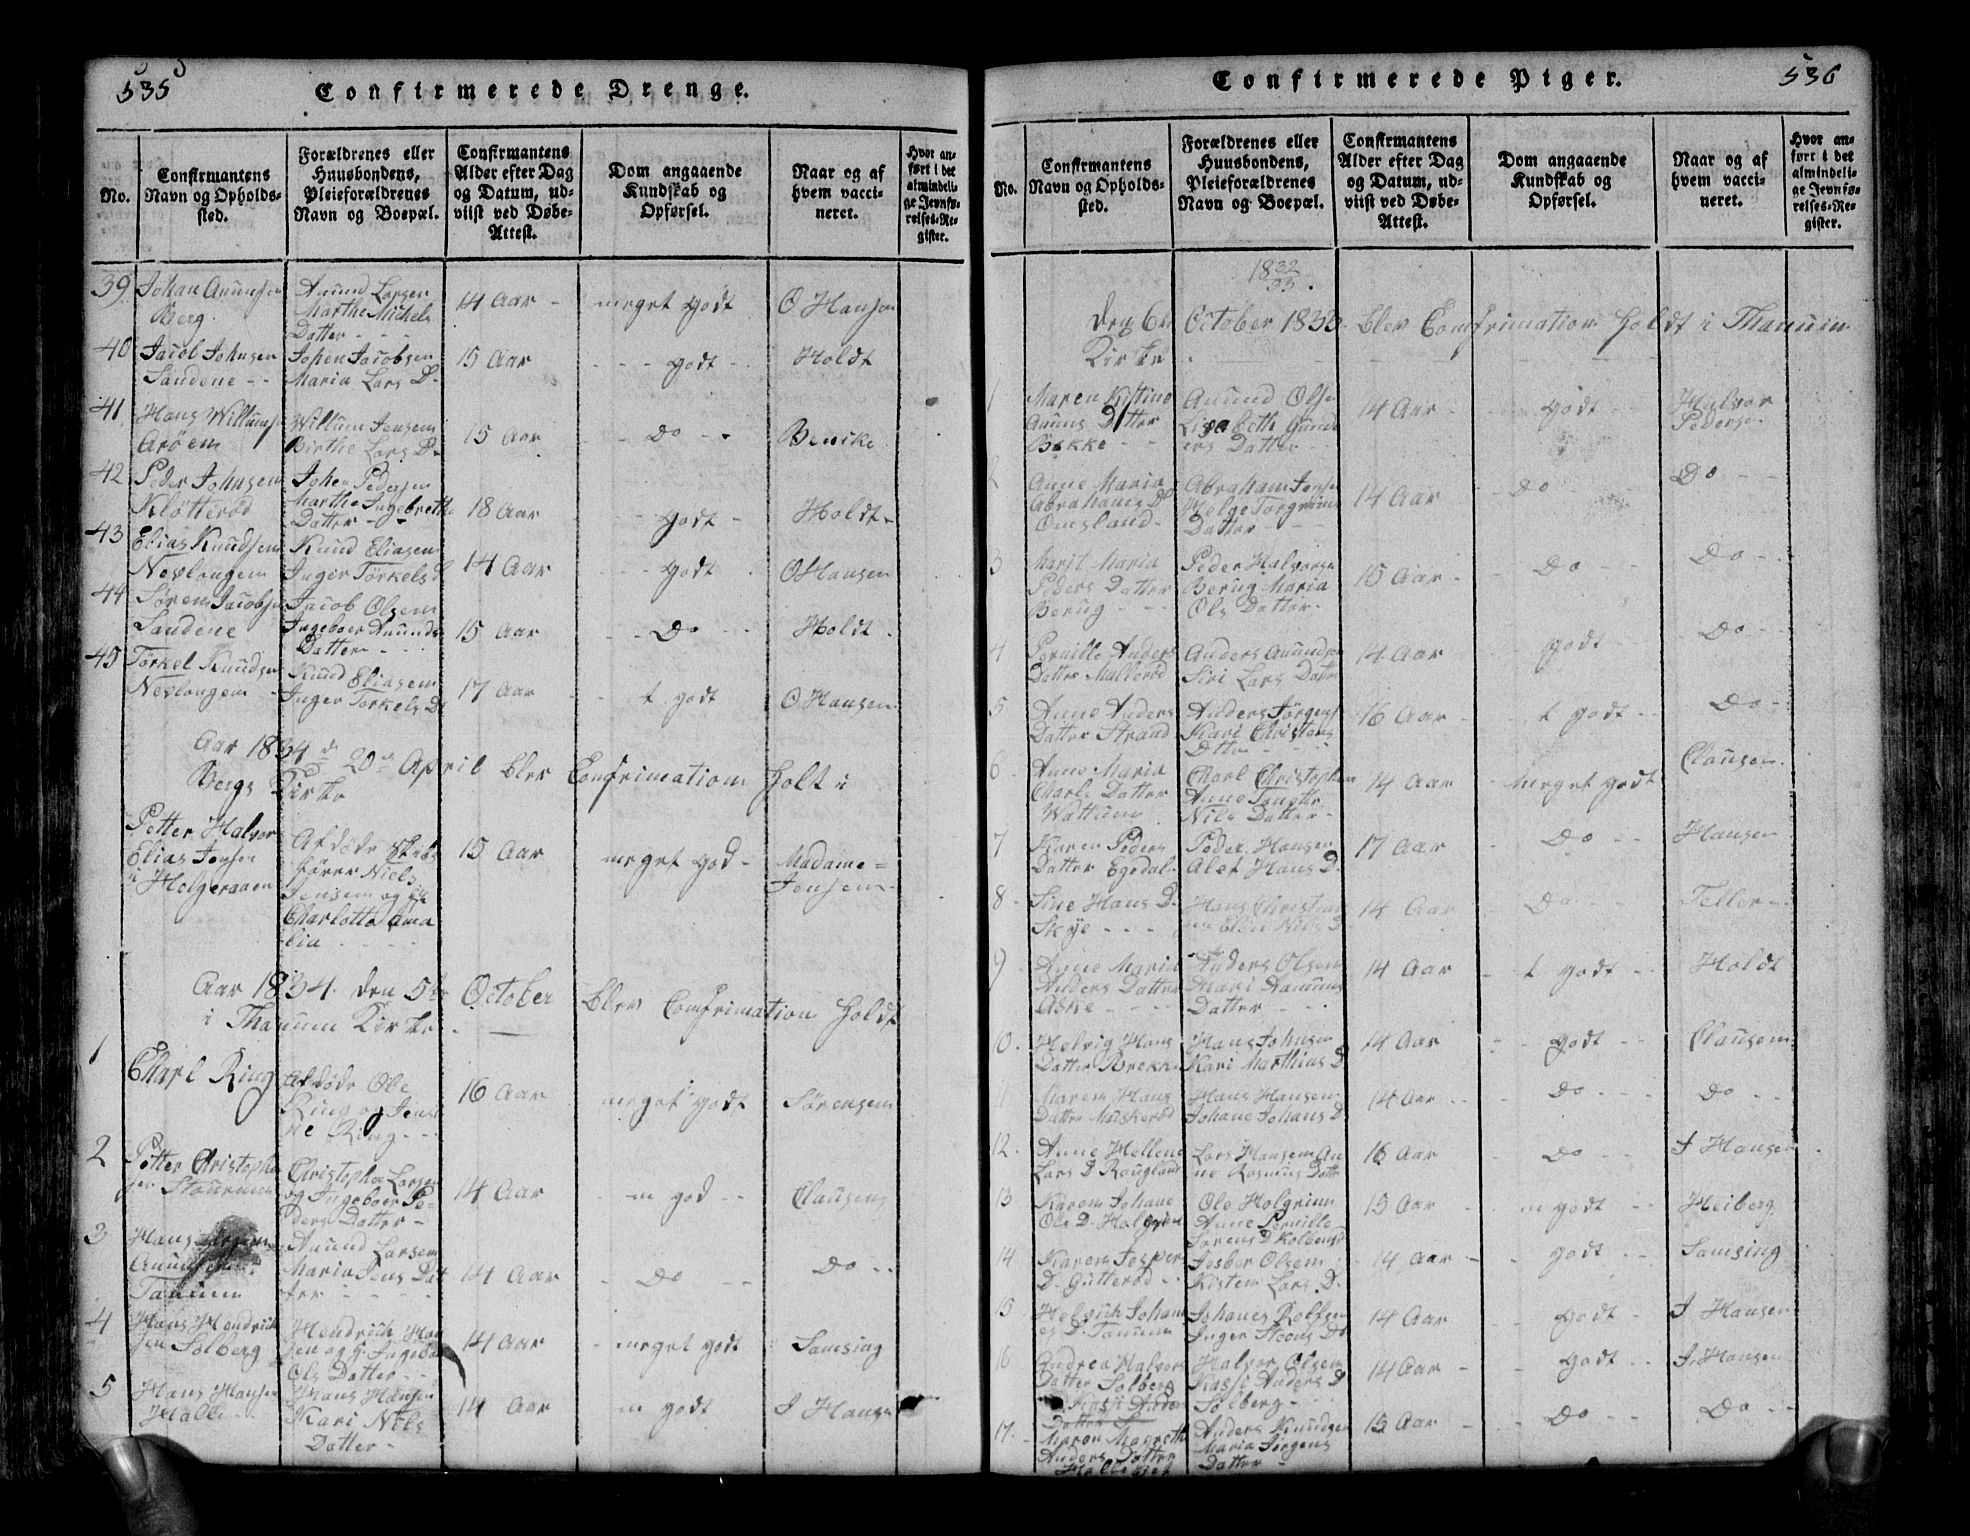 535
Confirmerede Drenge.
No.
Confirmantens
Navn og Opholds-
sted.
Forældrenes eller
Huusbondens,
Pleieforældrenes
Navn og Boepæl.
Confirmantens
Alder efter Dag
og Datum, ud-
viist ved Døbe-
Attest.
Dom angaaende
Kundskab og
Opførsel.
Naar og af
hvem vacci-
neret.
Hvor an-
ført i det
almindeli-
ge Jevnfø-
relses-Re-
gister.
39 Johan
Berg.
Anund Larsen
Marthe Michels
Datter - -
14 Aar - meget godt O Hansen
40 Jacob Johnsen
Sandene - -
Johen Jacobsen
Maria Lars D.
15 Aar - - - godt - Holdt
41. Hans
Arøen
Willum Jensen
Birthe Lars D.
15 Aar - - Do - -
42 Peder Johnsen
Kløtterød
Johen Pedersen
Marthe Ingebreths
Datter - -
18 Aar - - godt - Holdt -
43 Elias Knudsen
Nevlongen
Knud Eliasen
Inger Torkels D
14 Aar - - - godt O Hansen
44 Søren Jacobsen
Sandene
Jacob Olsen
Ingeboer
Datter - - -
15 Aar - - Do - - Holdt.
45 Törkel Knudsen
Nevlongen -
Knud Eliasen
Inger Torkels D
17 Aar - - t godt O Hansen
Aar 1834 d 20 April blev Comfrimation Holt i
Bergs Kirke
Petter Halvor
Elias Jensen
i Helgeraaen
Afdøde
Niels
Jensen og
Charlotte Ama
lia - - - -
15 Aar meget god - Madame=
Jensen -
Aar 1834. den 5te October blev Comfrimation Holdt
i Thanum Kirke. -
1 Charl Ring
Afdøde Ole
Ring og
Ring - - -
16 Aar meget godt Sørensen
2 Petter Christopher
sen
Christopher Larsen
og Ingeboer Pe-
ders Datter -
14 Aar - m god - - Clausen
3 Hans
Tanum
Anund Larsen
Maria Jens Dat
ter - - - -
14 Aar - Do - - Do - -
4 Hans Hendrich
sen Solberg
Hendrich Han
sen og
Ols Datter - -
14 Aar - meget godt Samsing
5 Hans Hansen
Halle - -
Hans Hansen
Kari Nils
Datter -
14 Aar m godt J Hansen
536
Confirmerede Piger.
No.
Confirmantens
Navn og Opholds-
sted.
Forældrenes eller
Huusbondens,
Pleieforældrenes
Navn og Boepæl.
Confirmantens
Alder efter Dag
og Datum, ud-
viist ved Døbe-
Attest.
Dom angaaende
Kundskab og
Opførsel.
Naar og af
hvem vacci-
neret.
Hvor an-
ført i det
almindeli-
ge Jevnfø-
relses-Re-
gister.
1832
33.
Den 6te October 1833. blev Comfrimation Holdt i Thanum
Kirke. - - - - -
1 Maren Kistine
Anuns Dtter
Bøkke - -
Anund Olsen
Lisabeth Gund
ers Datter
14 Aar - - godt - - Halvor
Pedersen
2 Anne Maria
Abrahams D
Omsland -
Abraham Jensen
Helge Torgrims
Datter - - -
14 Aar - Do - - Do - -
3 Marit Maria
Peders Datter
Berug - - -
Peder Halvorsen
Berug Maria
Ols Datter -
15 Aar - - Do - - Do - -
4 Pernille Anders
Datter Mallerød
Anders Anundsen
Siri Lars Datter
14 Aar godt - - Do - -
5 Anne Anders
Datter Strand
Anders Jörgens
Kari Christens
Dtter - - - -
16 Aar - - t godt - - Do - -
6 Anne Maria
Charl Datter
Wattum
Charl Christophersen
Anne
Nils Datter -
14 Aar - Meget godt Clausen
7 Karen Peders
Datter Egedal.
Peder Hansen
Alet Hans D.
17 Aar - Do - - Hansen
8 - Sine Hans D.
Skye - - -
Hans Christian
sen Elen Nils D
14 Aar - Do - - Teller - -
9 Anne Maria
Anders Datter
Aske - - -
Anders Olsen
Mari
Datter - - -
14 Aar - t godt - - Holdt
10. Helvig Hans
Datter Brekke
Hans Johnsen
Kari Marthias D
14 Aar - godt - - Clausen
11 Maren Hans
Datter
Hans Hansen
Johane Johans D
14 Aar - - - Do - - - Do - -
12. Anne Hellene
Lars D Rougland
Lars Hansen An
ne Rasmus Dattr
16 Aar - Do - - J Hansen
13 Karen Johane
Ols D. Holgrim
Ole Holgrim
Anne Pernille
Sørens D
15 Aar - - m godt - - Heiberg
14 Karen Jesper
D. Gutterød - -
Jesber Olsen
Kisten Lars D.
14 Aar - - godt - - Samsing
15 Helvich Johan
es D. Tanum
Johanes
Inger Steens D
14 Aar godt - J Hansen
16 Andrea Halvors
Datter Solberg
Halvor Olsen
Kassi Anders D
Solberg - -
14 Aar - - godt - - J Hansen
17. Maren Magreth
Anders Datter
Anders Knudsen
Maria Jörgens
Datter -
15 Aar - - Do - - Do - -